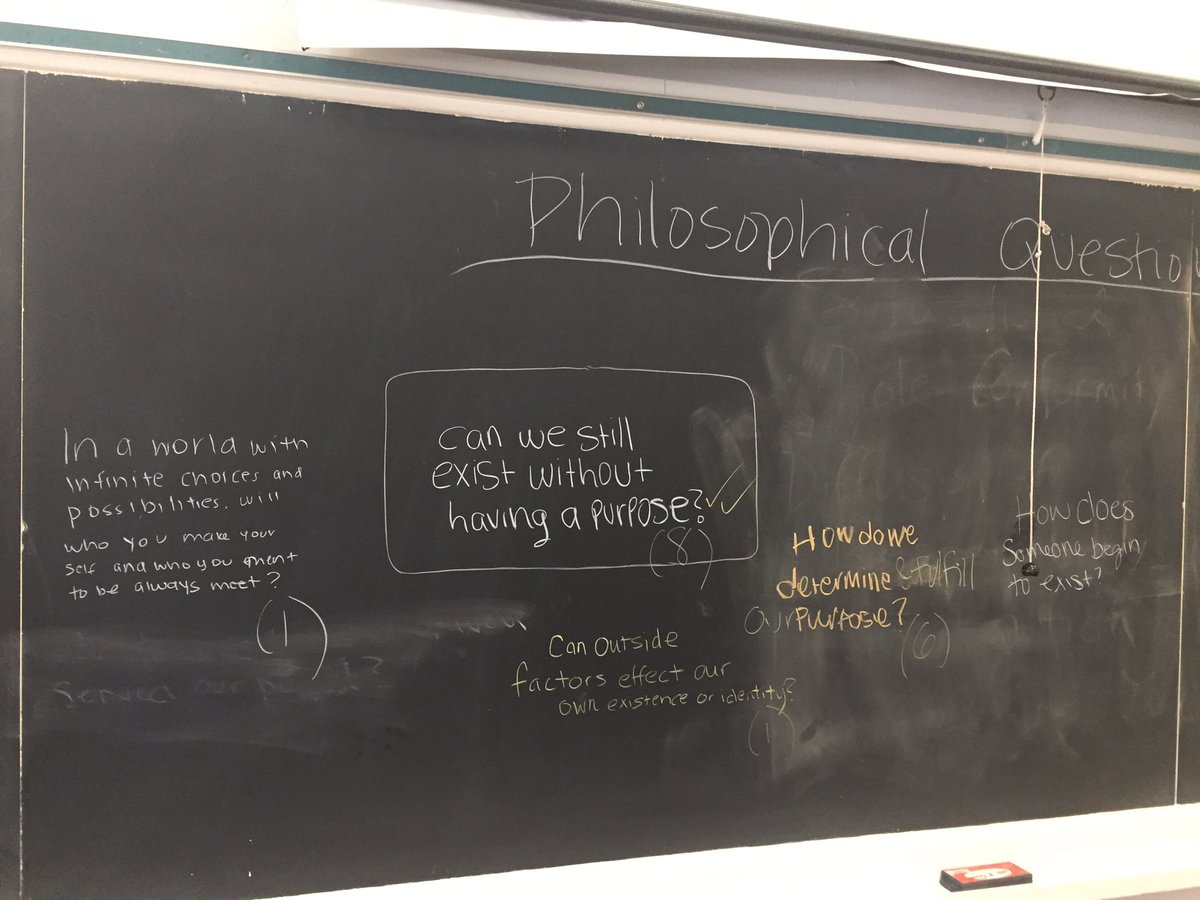 Philosophical Questio
In a world with
infinite choices and
possibilities, will
who you make your
self and who you ment
to be always meet?
(1)
can we still
exist without
having a purpose?
(8)
Can outside
factors effect our
own existence or identity?
(1)
How do we
determine & fulfill
our purpose?
(6)
How does
someone begin
to exist?
Served our
Conformity